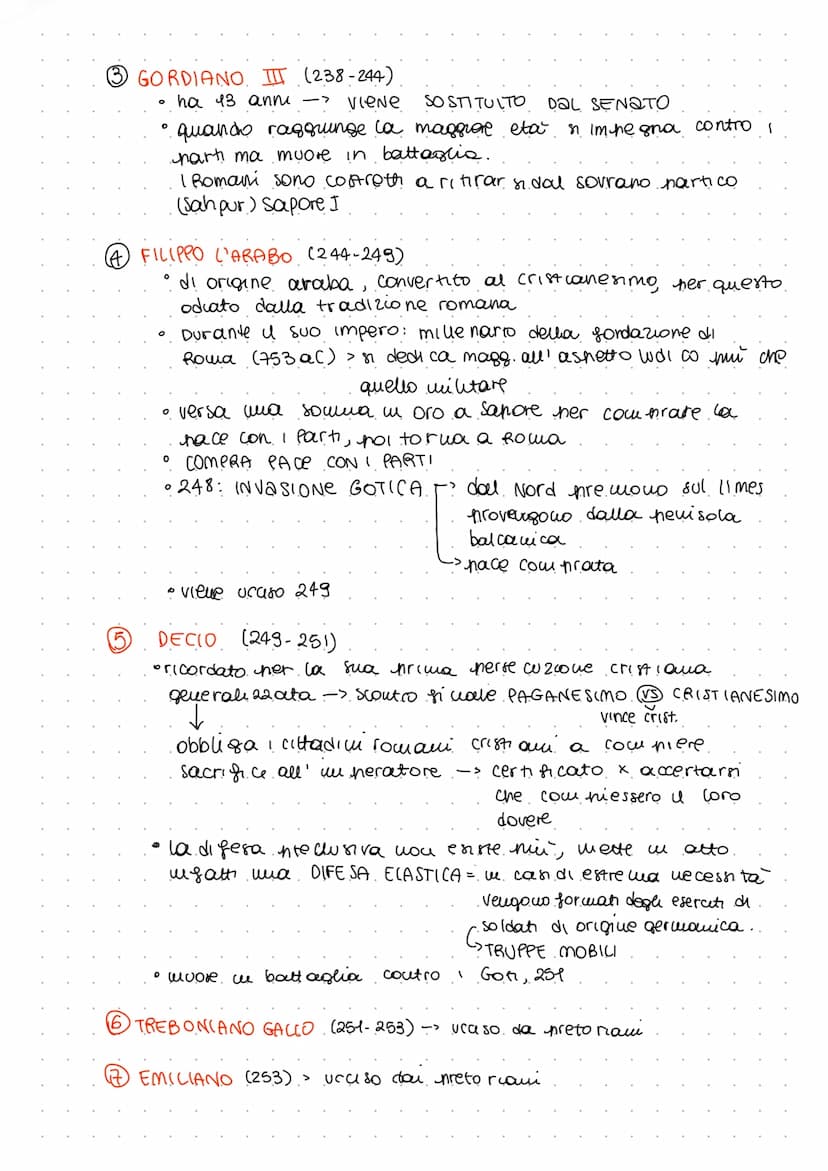 ③ GORDIANO III (238-244)
• ha 13 anni -> VIENE SOSTITUITO DAL SENATO
• quando raggiunge la maggiore età si impegna contro i
parti ma muore in battaglia.
I Romani sono costretti a ritirarsi dal sovrano partico
(Sahpur) Sapore I
④ FILIPPO L'ARABO (244-249)
• di origine araba, convertito al cristianesimo, per questo
odiato dalla tradizione romana
• Durante il suo impero: millenario della fondazione di
Roma (753 a.C) > si dedica magg. all'aspetto ludico più che
quello militare
• versa una somma in oro a Sapore per comprare la
pace con i Parti, poi torna a Roma
• COMPRA PACE CON I PARTI
• 248: INVASIONE GOTICA -> dal Nord premono sul limes
provengono dalla penisola
balcanica
-> pace comprata
• viene ucciso 249
⑤ DECIO (249-251)
• ricordato per la sua prima persecuzione cristiana
generalizzata -> scontro finale PAGANESIMO VS CRISTIANESIMO
vince crist.
obbliga i cittadini romani cristiani a compiere
sacrifice all'imperatore -> certificato x accertarsi
che compiessero il loro
dovere
• la difesa preclusiva non esiste più, mette in atto
infatti una DIFESA ELASTICA = in casi di estrema necessità
vengono formati degli eserciti di
soldati di origine germanica.
-> TRUPPE MOBILI
• muore in battaglia contro i Goti, 251
⑥ TREBONIANO GALLO (251-253) -> ucciso da pretoriani
⑦ EMILIANO (253) > ucciso dai pretoriani